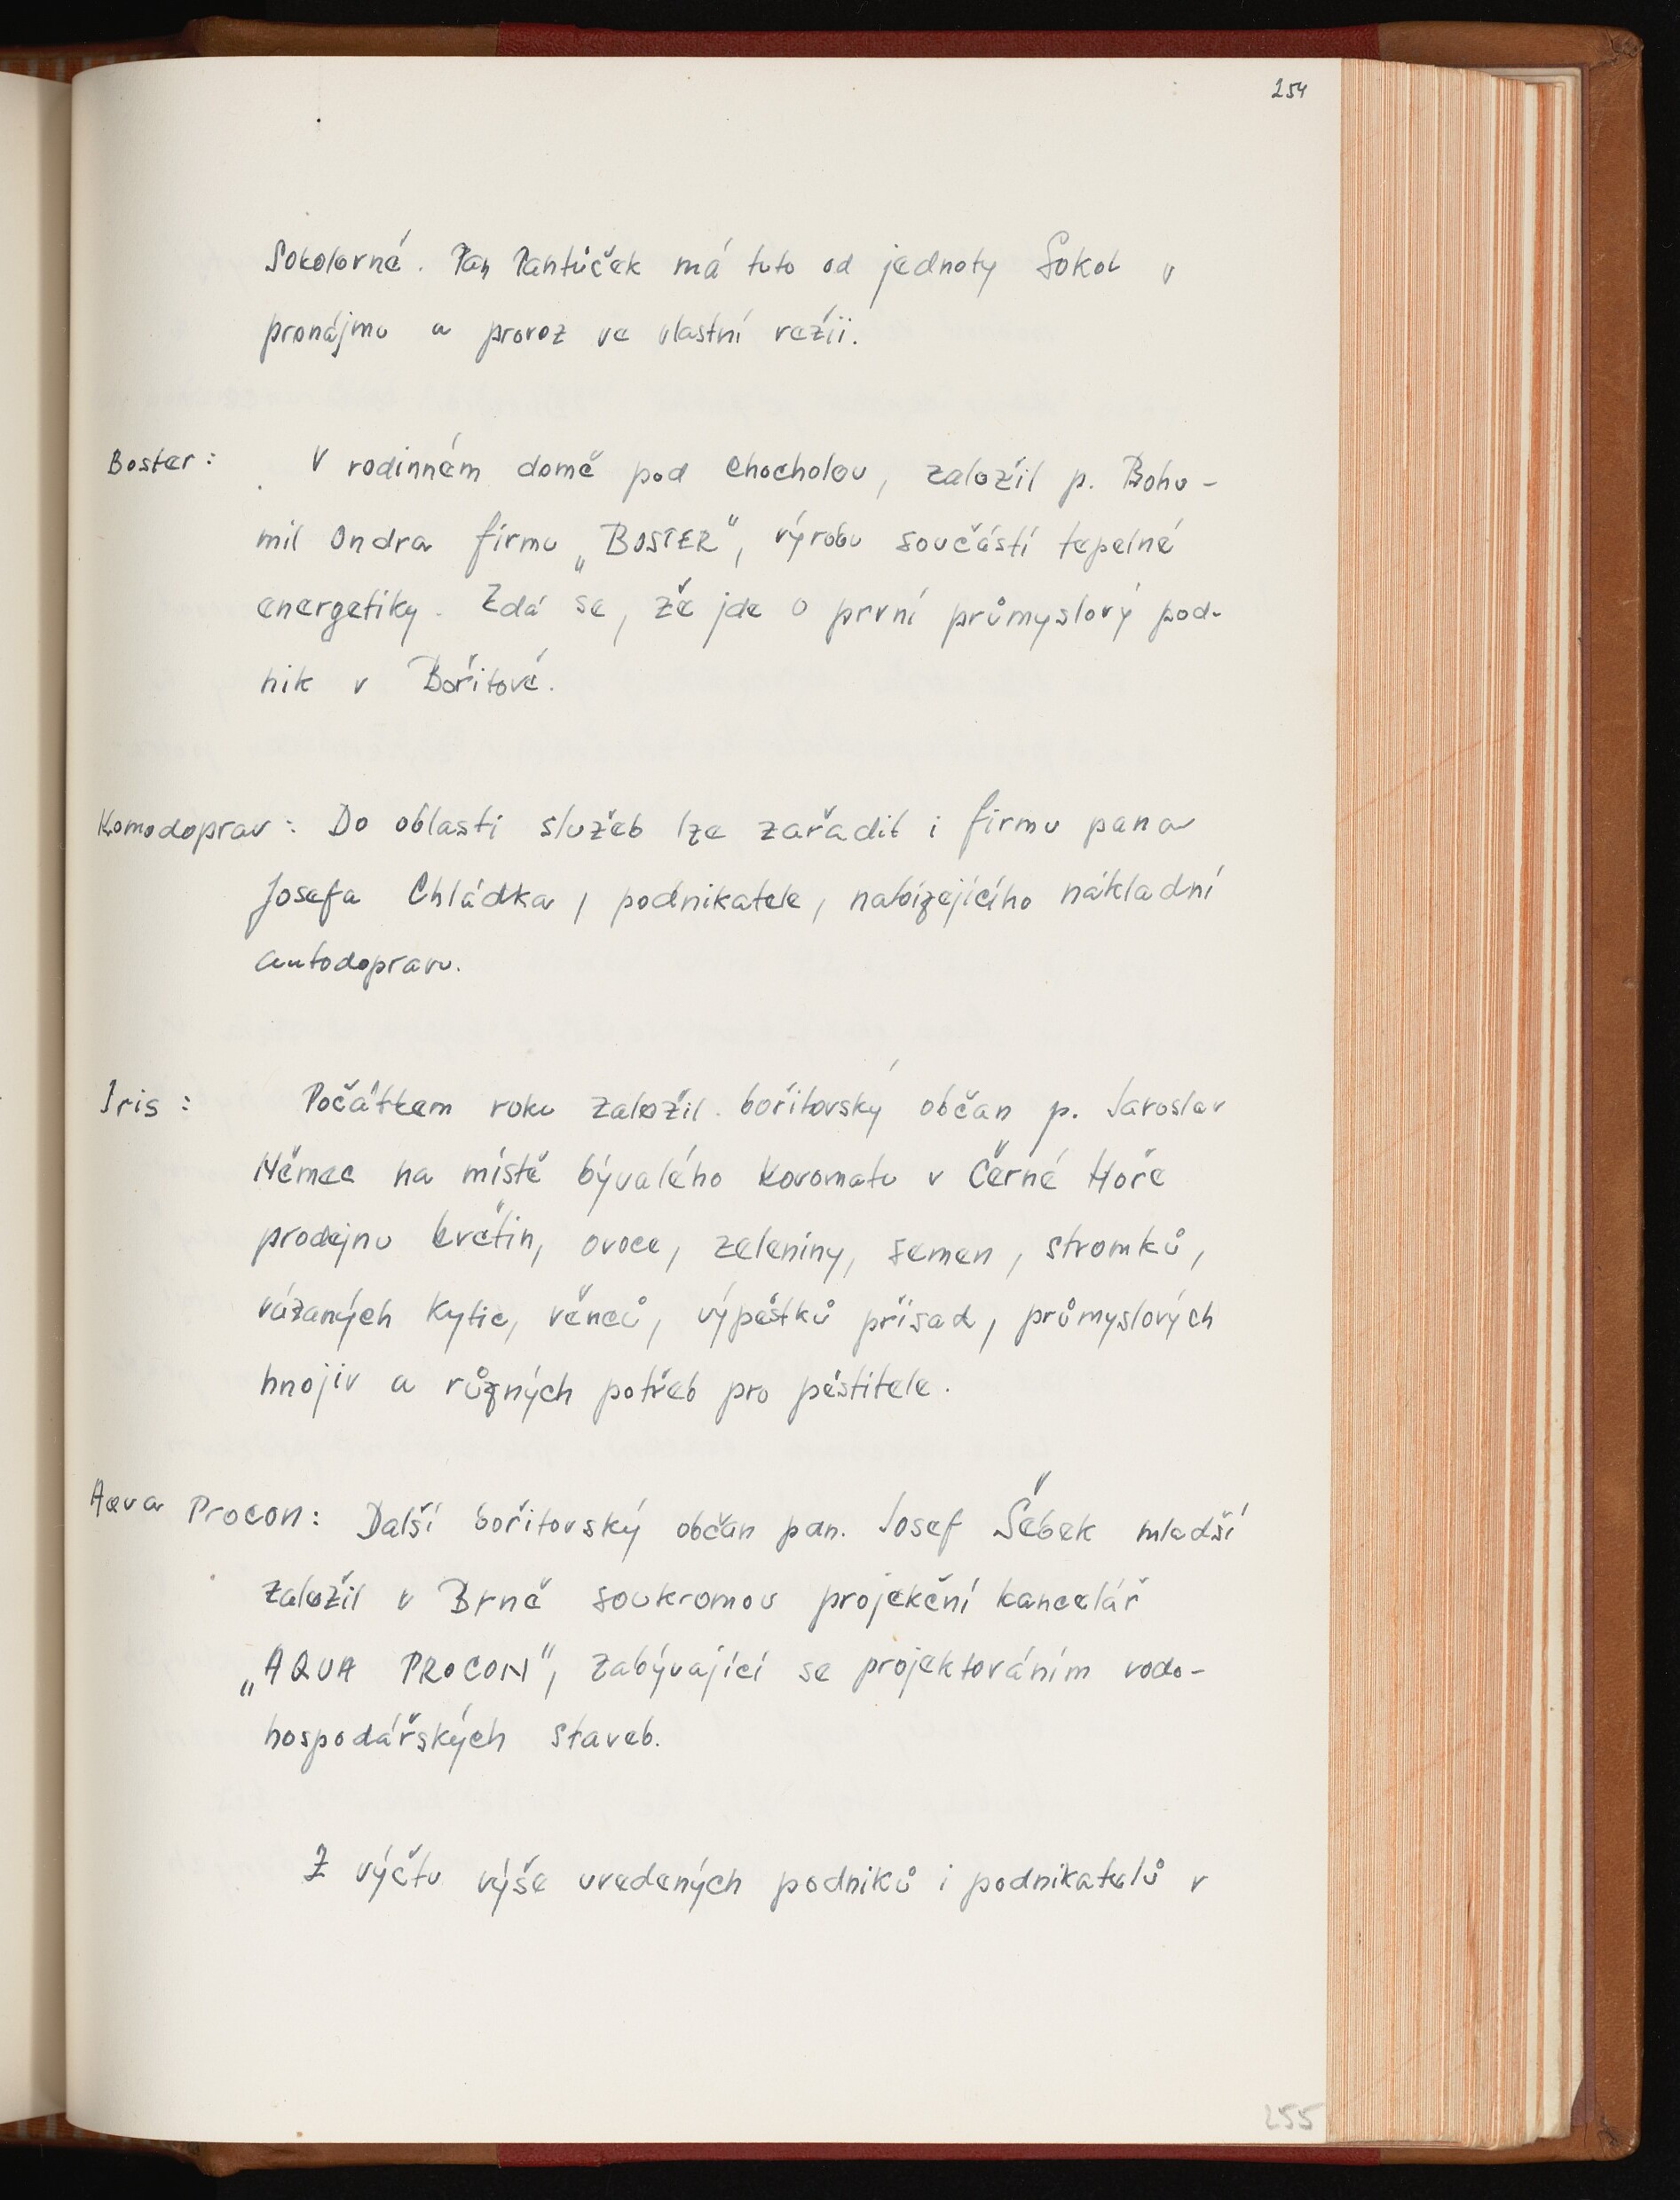 254
Sokolovně. Pan Pantůček má tuto od jednoty Sokol v
pronájmu a provoz ve vlastní režii.
Boster: V rodinném domě pod Chocholou, založil p. Bohu-
mil Ondra firmu „BOSTER“, výrobu součástí tepelné
energetiky. Zdá se, že jde o první průmyslový pod-
nik v Bořitově.
Komodoprav: Do oblasti služeb lze zařadit i firmu pana
Josefa Chládka, podnikatele, nabízejícího nákladní
autodopravu.
Iris: Počátkem roku založil bořitovský občan p. Jaroslav
Němec na místě bývalého Kovomatu v Černé Hoře
prodejnu květin, ovoce, zeleniny, semen, stromků,
vázaných kytic, věnců, výpěstků přísad, průmyslových
hnojiv a různých potřeb pro pěstitele.
Aqva Procon: Další bořitovský občan pan. Josef Šebek mladší
založil v Brně soukromou projekční kancelář
„AQUA PROCON“, zabývající se projektováním vodo-
hospodářských staveb.
Z výčtu výše uvedených podniků i podnikatelů v
255